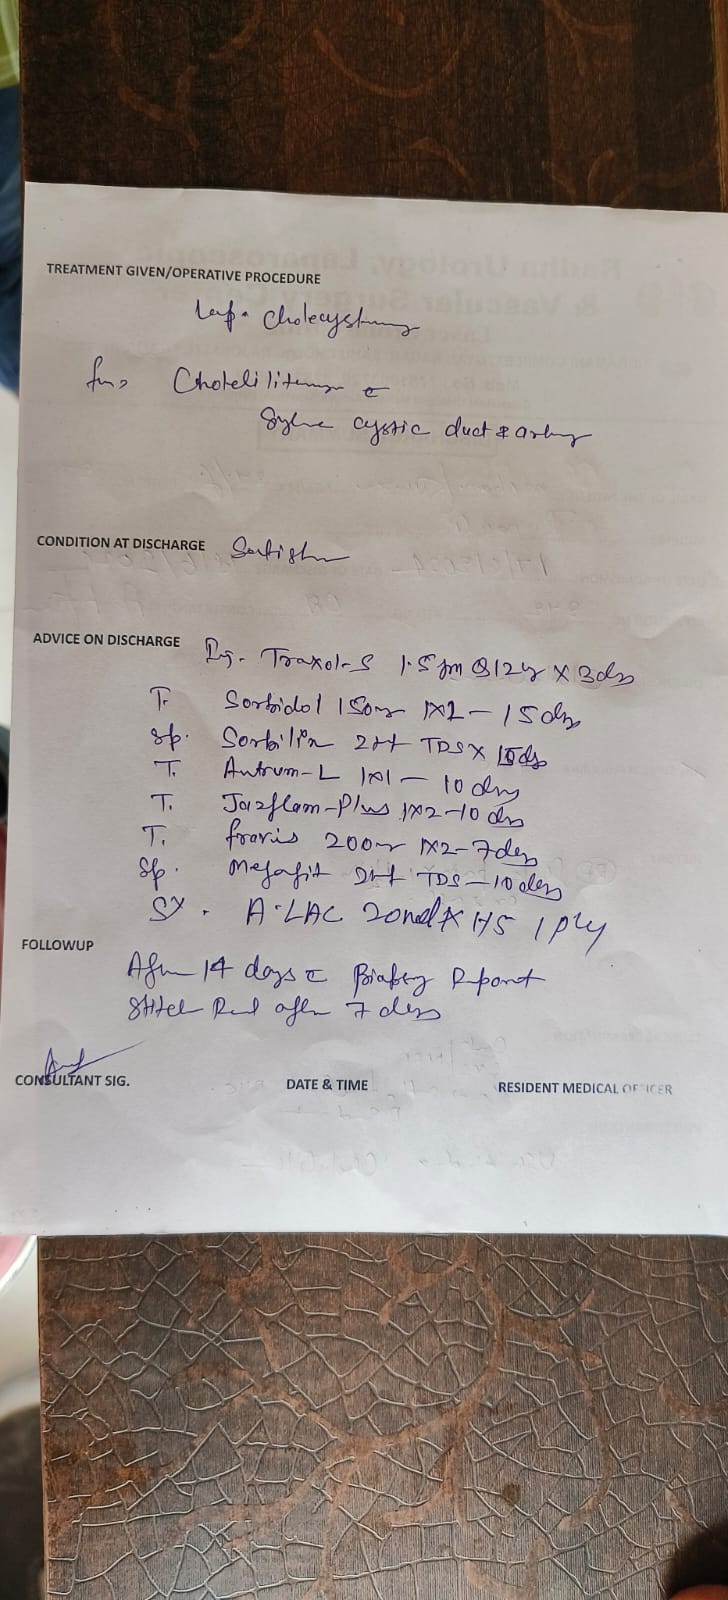 TREATMENT GIVEN/OPERATIVE PROCEDURE
Lap. Cholecystomy
Cystic duct & artery
CONDITION AT DISCHARGE
ADVICE ON DISCHARGE Inj. Traxol-S 1.5gm Q12 X 3days
T. Sorbidol 150mg 1X2 - 15 days
Sp. Sorbilin 2tf TDS X
T. Antrum-L 1X1 - 10 days
T. Jazflam-Plus 1X2-10 days
T. 200mg 1X2-7days
Sp. Megafit 2tf TDS-10 days
Sy. A-LAC 20ml X HS
FOLLOWUP
After 14 days c̄ Biopsy Report
Stitch after 7 days
CONSULTANT SIG. DATE & TIME RESIDENT MEDICAL OFFICER